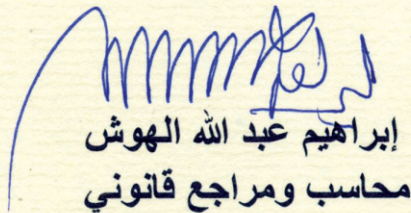 إبراهيم عبد الله الهوش
محاسب ومراجع قانوني